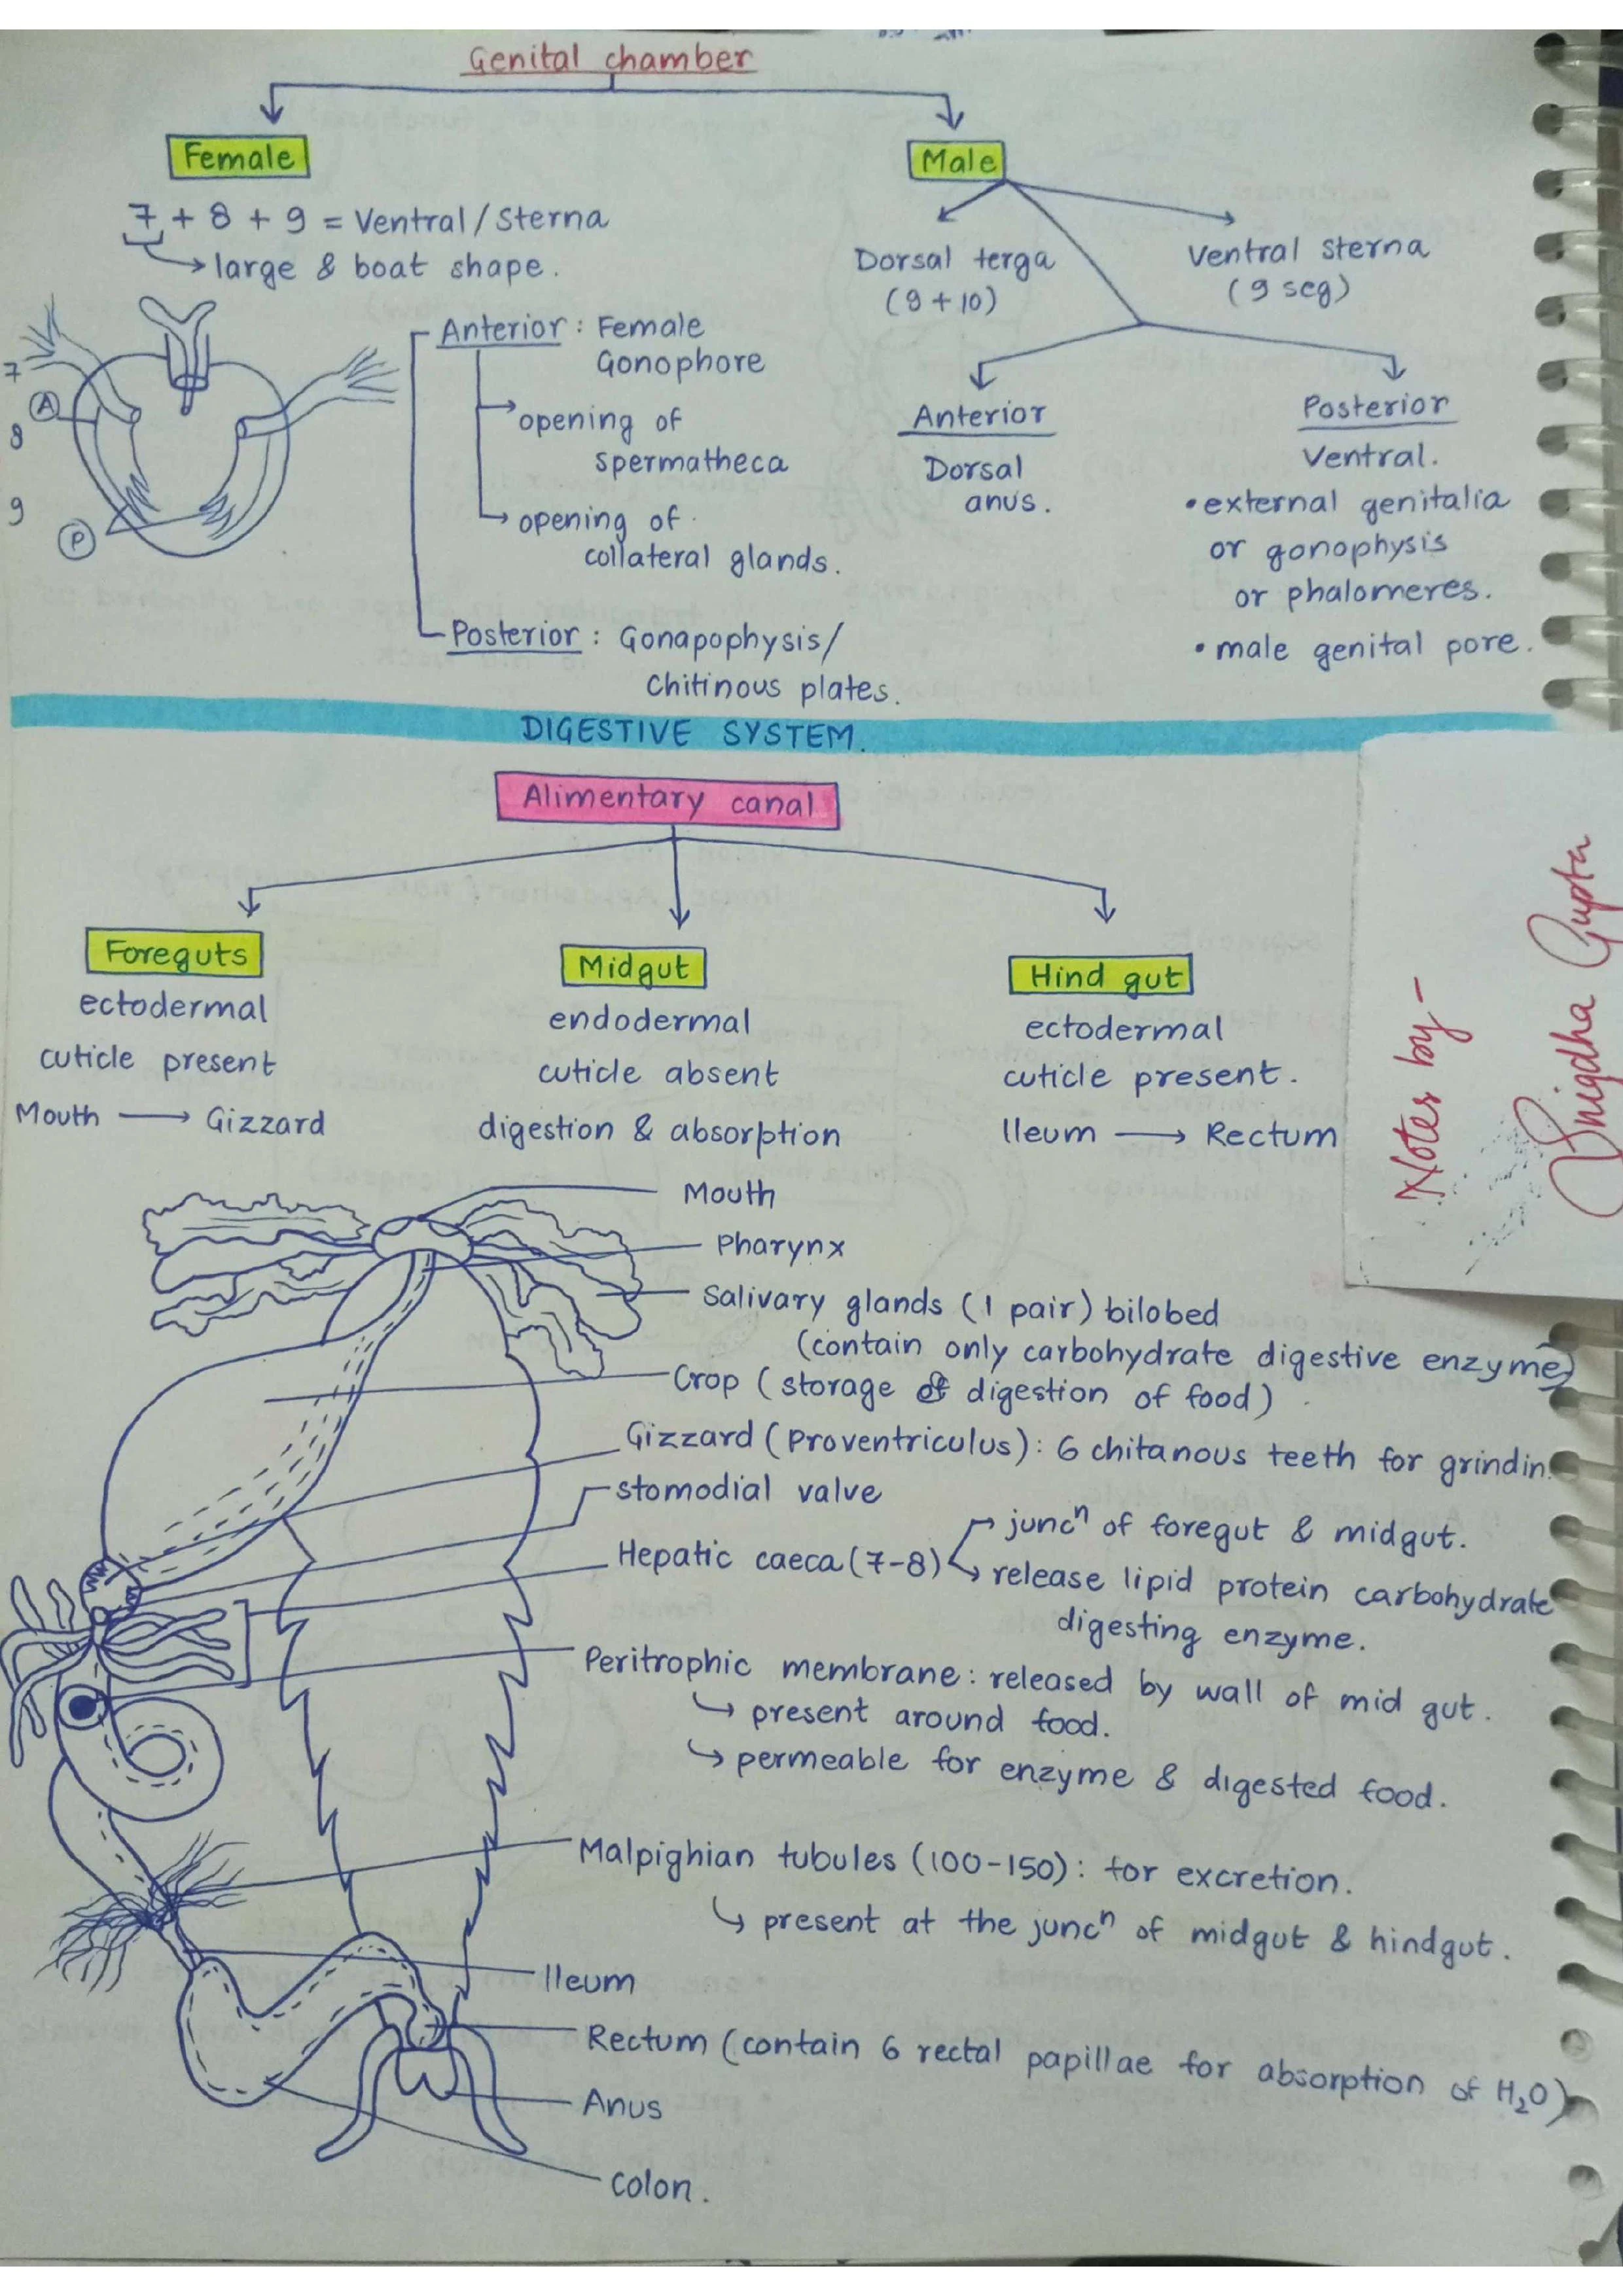 Genital chamber
Female
Male
7 + 8 + 9 = Ventral / Sterna
large & boat shape.
Dorsal terga
(9 + 10)
Ventral sterna
(9 seg)
7
A
8
9
P
Anterior : Female
Gonophore
opening of
spermatheca
opening of
collateral glands.
Posterior : Gonapophysis/
Chitinous plates.
Anterior
Dorsal
anus.
Posterior
Ventral.
• external genitalia
or gonophysis
or phalomeres.
• male genital pore.
DIGESTIVE SYSTEM.
Alimentary canal
Foreguts
ectodermal
cuticle present
Mouth → Gizzard
Midgut
endodermal
cuticle absent
digestion & absorption
Hind gut
ectodermal
cuticle present.
Ileum → Rectum
Notes by-
Snigdha Gupta
Mouth
Pharynx
Salivary glands (1 pair) bilobed
(contain only carbohydrate digestive enzyme)
Crop (storage & digestion of food)
Gizzard (Proventriculus): 6 chitanous teeth for grindin
stomodial valve
Hepatic caeca (7-8)
juncⁿ of foregut & midgut.
release lipid protein carbohydrate
digesting enzyme.
Peritrophic membrane: released by wall of mid gut.
↳ present around food.
↳ permeable for enzyme & digested food.
Malpighian tubules (100-150): for excretion.
↳ present at the juncⁿ of midgut & hindgut.
Ileum
Rectum (contain 6 rectal papillae for absorption of H₂O)
Anus
Colon.